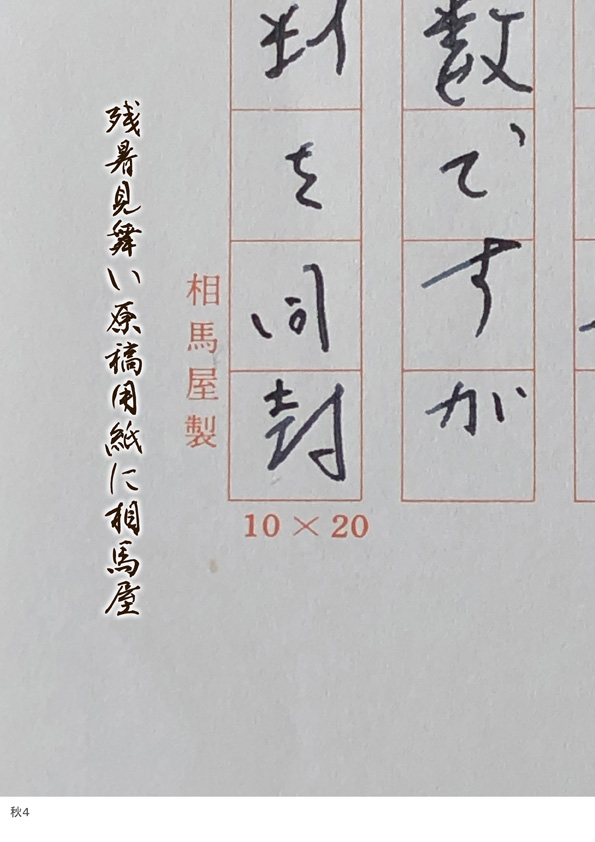 数ですが
を同封
相馬屋製
10×20
残暑見舞い原稿用紙に相馬屋
秋4